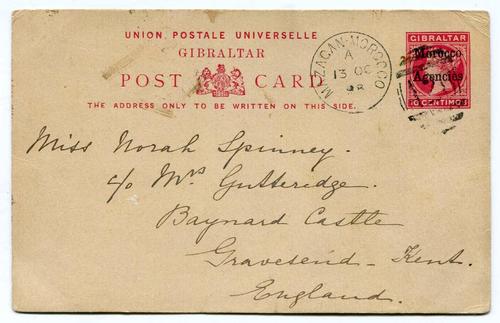 UNION POSTALE UNIVERSELLE
GIBRALTAR
POST CARD
THE ADDRESS ONLY TO BE WRITTEN ON THIS SIDE.
MAZAGAN-MOROCCO
A
13 OC
98
GIBRALTAR
Morocco
Agencies
10 CENTIMOS
Miss Norah Spinney.
c/o Mrs Gutteridge.
Baynard Castle
Gravesend - Kent.
England.